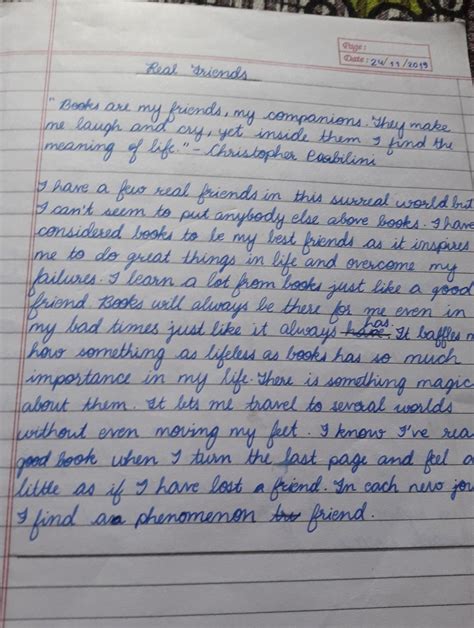 Page:
Date: 24/11/2019
Real Friends
"Books are my friends, my companions. They make
me laugh and cry, yet inside them I find the
meaning of life." - Christopher Coobilini
I have a few real friends in this surreal world but
I can't seem to put anybody else above books. I have
considered books to be my best friends as it inspires
me to do great things in life and overcome my
failures. I learn a lot from books just like a good
friend Books will always be there for me even in
my bad times just like it always has. It baffles m
how something as lifeless as books has so much
importance in my life. There is something magic
about them. It lets me travel to several worlds
without even moving my feet. I know I've rea
good book when I turn the last page and feel a
little as if I have lost a friend. In each new jou
I find a phenomenon friend.